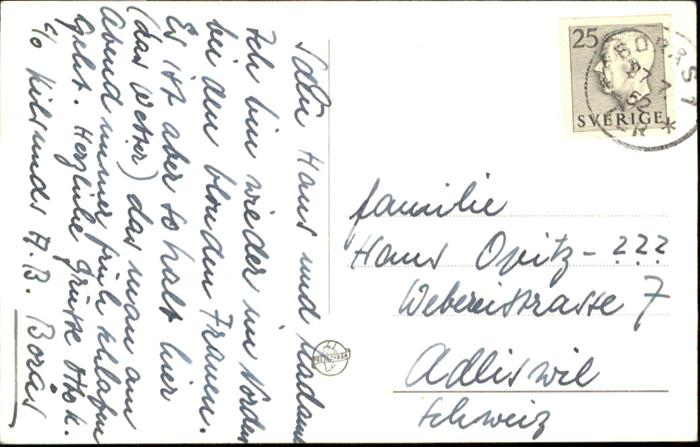 Salü Hans und Madame
Ich bin wieder im Norden
bei den blonden Frauen.
Es ist aber so kalt hier
(das Wetter) das man am
Abend immer früh schlafen
geht. Herzliche Grüsse
c/o Kilsunds A.B. Borås
25
SVERIGE
BORÅS 1
familie
Hans Opitz - ???
Webereistrasse 7
Adliswil
Schweiz